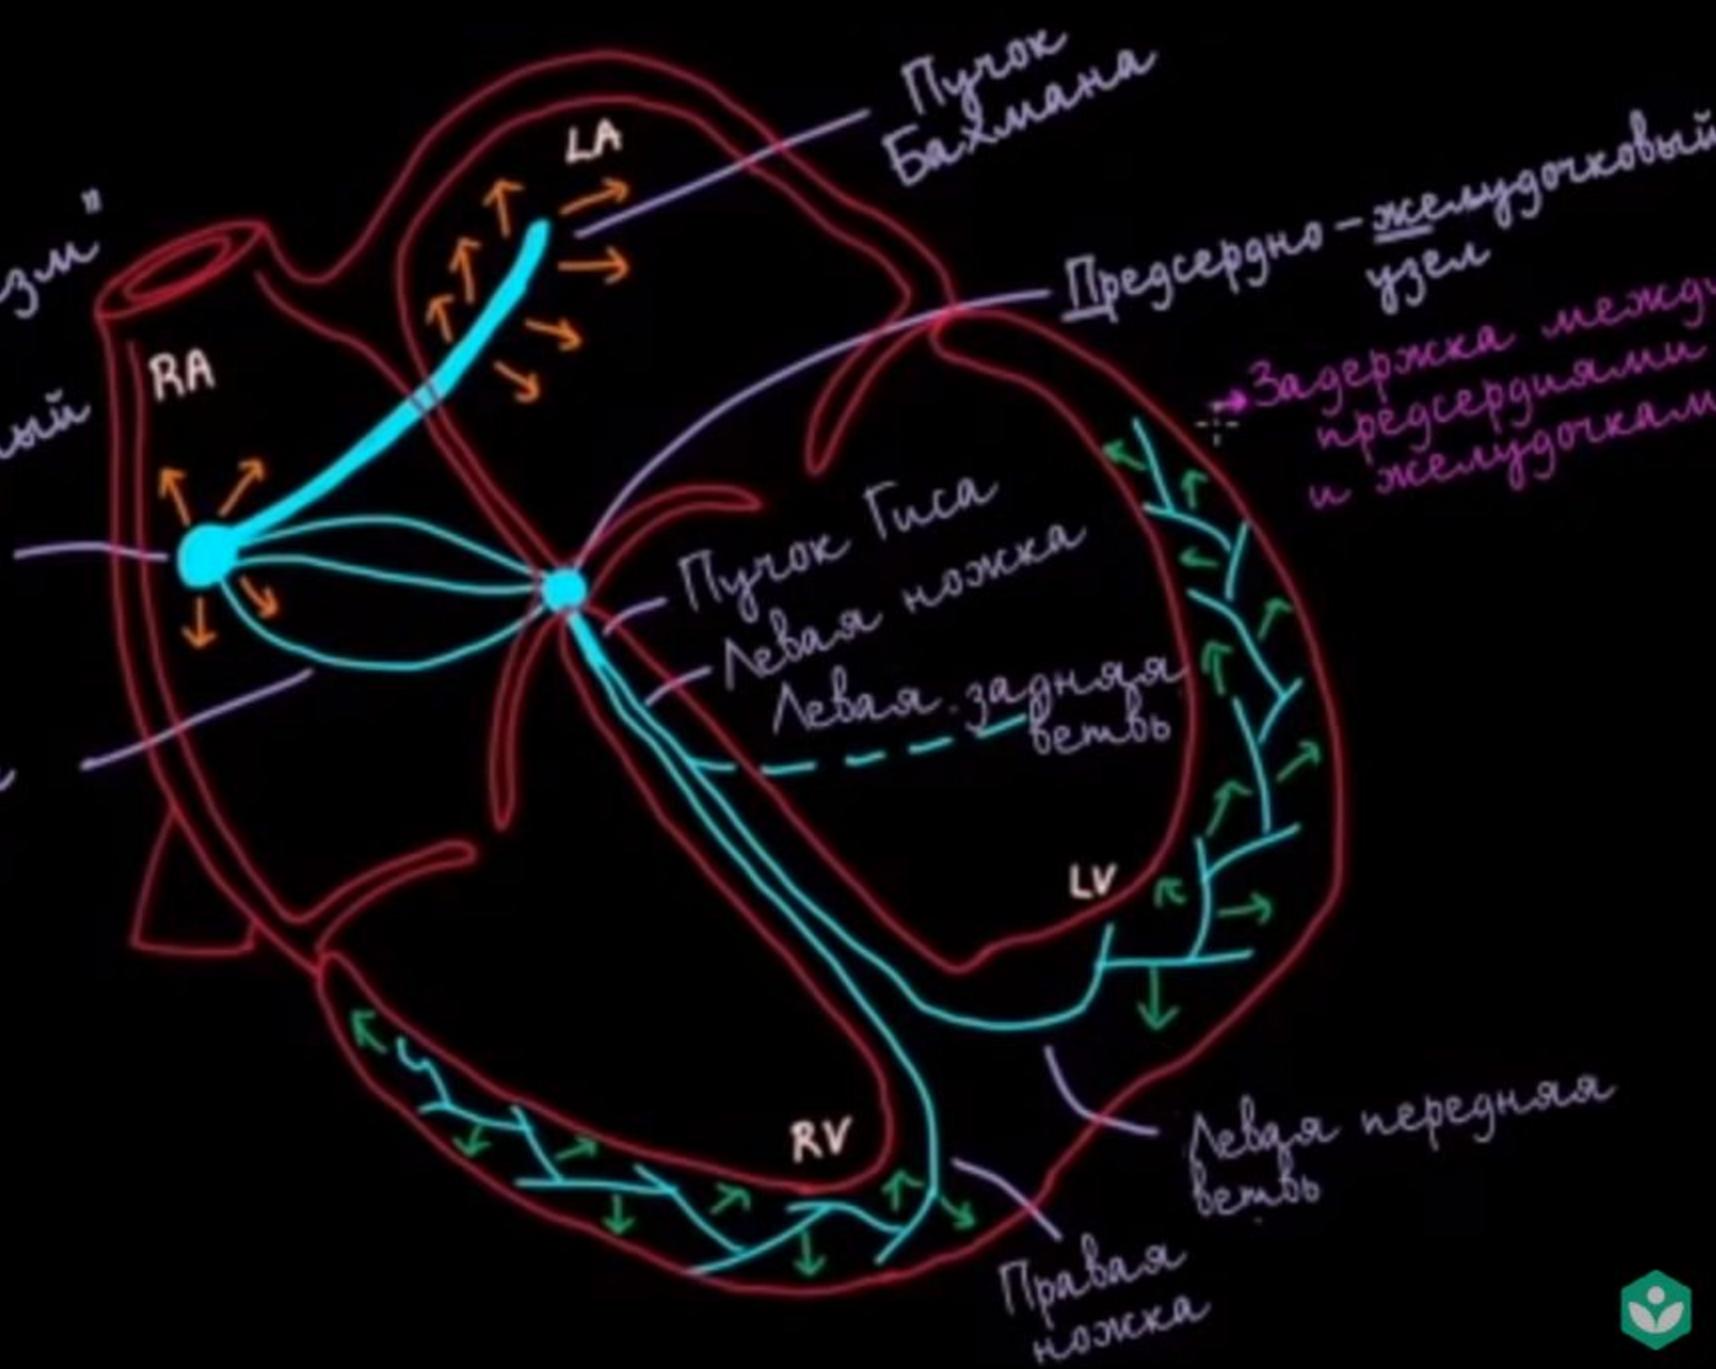 Пучок
Бахмана
LA
Предсердно-желудочковый
узел
Задержка
предсердиями
и
RA
Пучок Гиса
Левая ножка
Левая задняя
ветвь
LV
RV
Левая передняя
ветвь
Правая
ножка